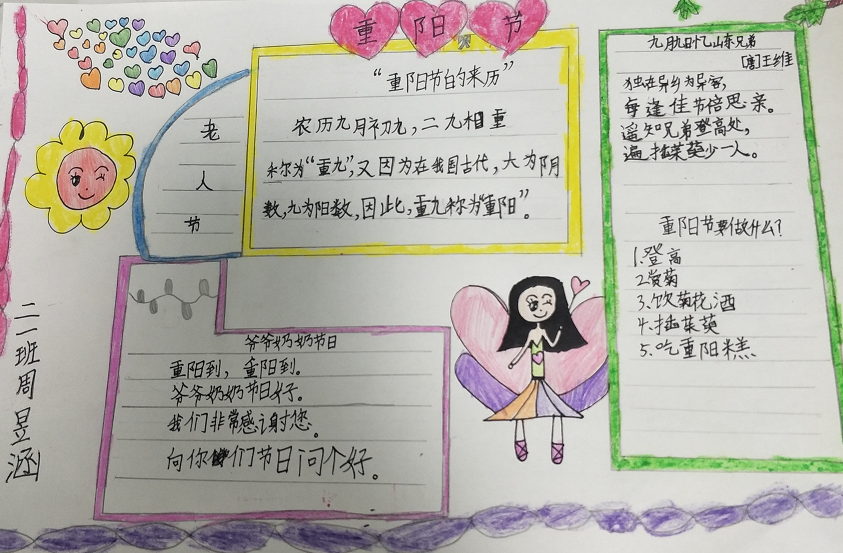 重阳节
老
人
节
“重阳节的来历”
农历九月初九,二九相重
称为“重九”,又因为在我国古代,六为阴
数,九为阳数,因此,重九称为“重阳”。
九月九日忆山东兄弟
[唐]王维
独在异乡为异客,
每逢佳节倍思亲。
遥知兄弟登高处,
遍插茱萸少一人。
重阳节要做什么?
1.登高
2.赏菊
3.饮菊花酒
4.插茱萸
5.吃重阳糕
爷爷奶奶节日
重阳到,重阳到。
爷爷奶奶节日好。
我们非常感谢您。
向你们节日问个好。
二一班周昱涵